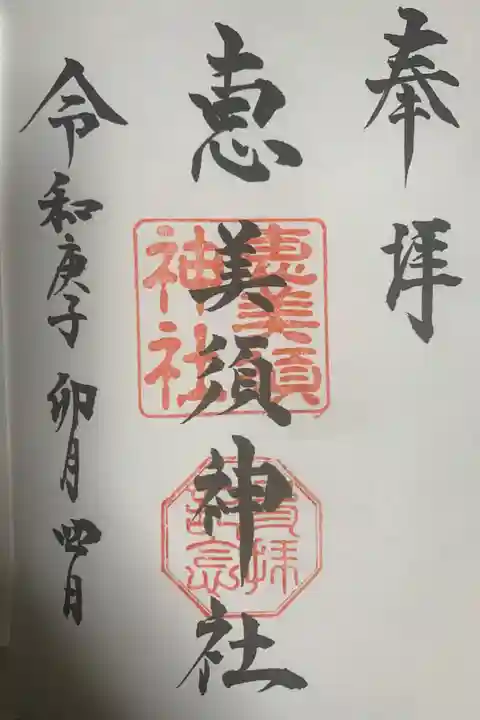 奉拝
恵美須神社
恵美須
神社
参拝
記念
令和庚子卯月四日